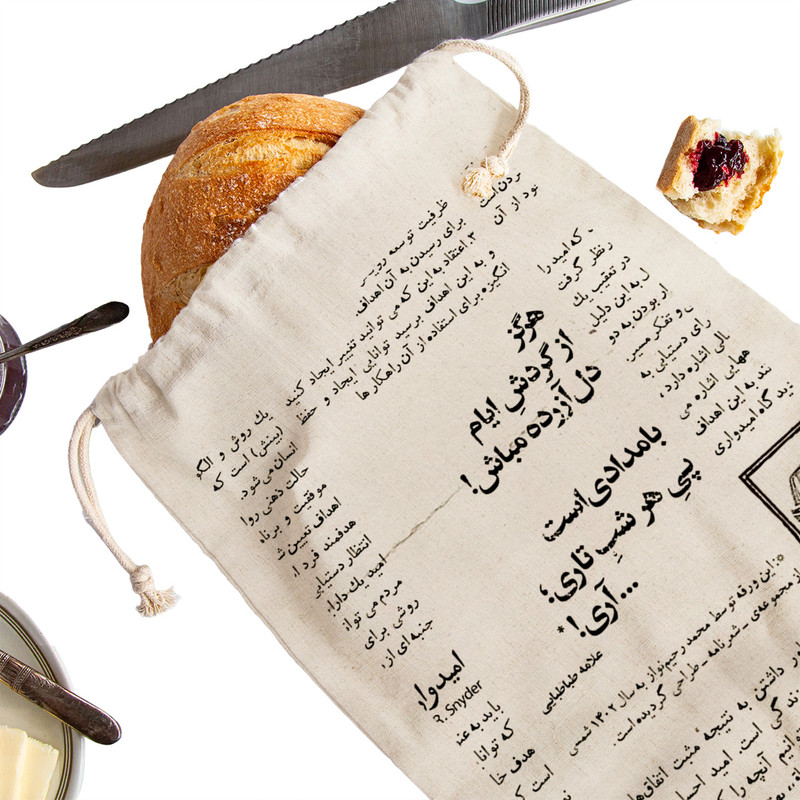 ردن است
ود از آن
ظرفیت توسعه
برای رسیدن به آن اهداف.
۳. اعتقاد به این که می توانید تغییر ایجاد کنید
و به این اهداف برسید توانایی ایجاد و حفظ
انگیزه برای استفاده از آن راهکارها
که امید را
در تعقیب یک
به این دلیل
از بودن به دو
و تفکر مسیر.
رای دستیابی به
اشاره دارد،
اشاره می
ند به این اهداف
گاه امیدواری
هرگز
از گردش ایام
دل آزرده مباش!
بامدادی است
پیِ هر شبِ تاری؛
آری!...*
علامه طباطبایی
یک روش و الگو
(بینش) است که
انسان می شود.
حالت ذهنی روا
موفقیت و برنا
اهداف تعیین ش
هدفمند فرد ا،
انتظار دستیابی
امید یک دارا،
مردم می توا
روشی برای
جنبه ای از،
امیدوا
R. Snyder
باید به
که توانا
هدف خا
است ک
*: این ورقه توسط محمد رحیم نواز به سال ۱۴۰۲ شمسی
از مجموعه‌ی ـ شبرنامه ـ طراحی گردیده است.
داشتن به نتیجهٔ مثبت اتفاق‌ها
ندگی است. امید احسا
آنچه را ک